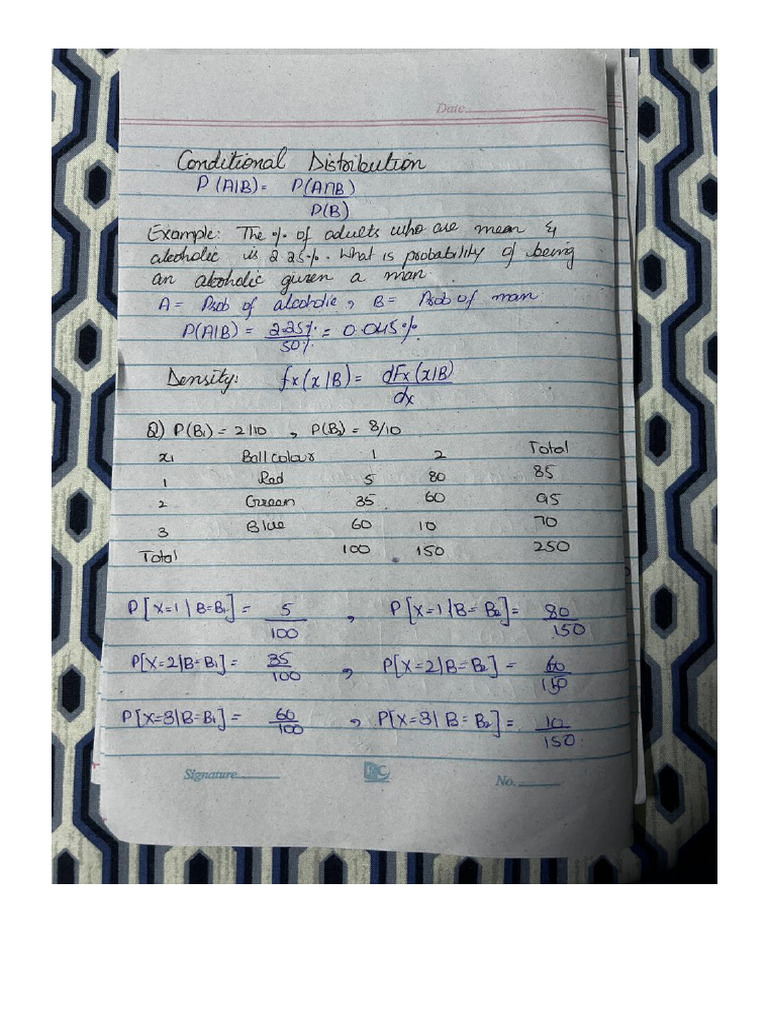 Date
Conditional Distribution
P(A|B) = P(A∩B)
P(B)
Example: The % of adults who are mean &
alcoholic is 2.25%. What is probability of being
an alcoholic given a man.
A = Prob of alcoholic, B = Prob of man.
P(A|B) = 2.25% = 0.045%.
50%
Density: fx(x|B) = dFx(x|B)
dx
Q) P(B1) = 2/10 , P(B2) = 8/10
x1 Ball colour 1 2 Total
1 Red 5 80 85
2 Green 35 60 95
3 Blue 60 10 70
Total 100 150 250
P[X=1|B=B1] = 5 , P[X=1|B=B2] = 80
100 150
P[X=2|B=B1] = 35 , P[X=2|B=B2] = 60
100 150
P[X=3|B=B1] = 60 , P[X=3|B=B2] = 10
100 150.
Signature No.